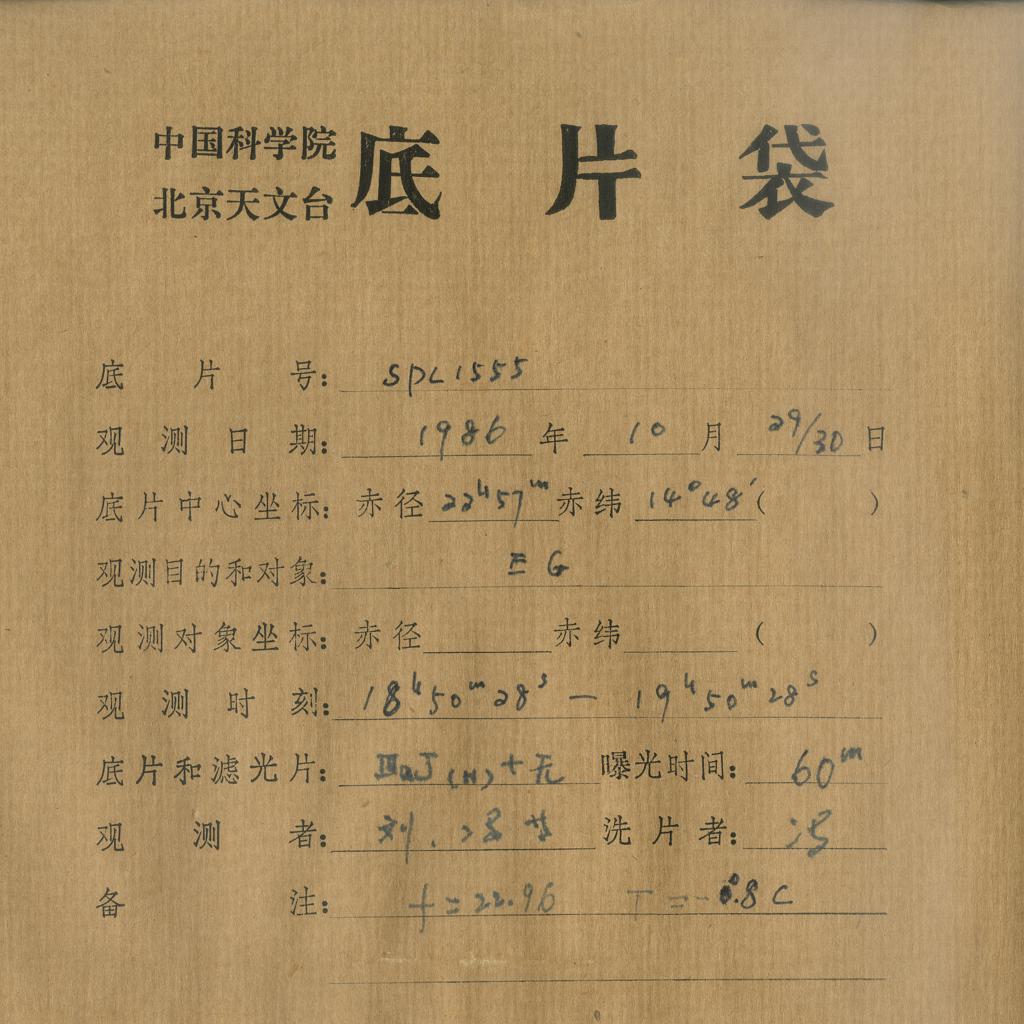 中国科学院
北京天文台
底片袋
底片号：SPL1555
观测日期：1986年10月29/30日
底片中心坐标：赤径22ʰ57ᵐ赤纬14°48′（　　）
观测目的和对象：EG
观测对象坐标：赤径　　赤纬　　（　　）
观测时刻：18ʰ50ᵐ28ˢ — 19ʰ50ᵐ28ˢ
底片和滤光片：ⅢaJ(H)+无 曝光时间：60ᵐ
观测者：刘.冯 洗片者：冯
备注：f=22.96 T=-0°.8C